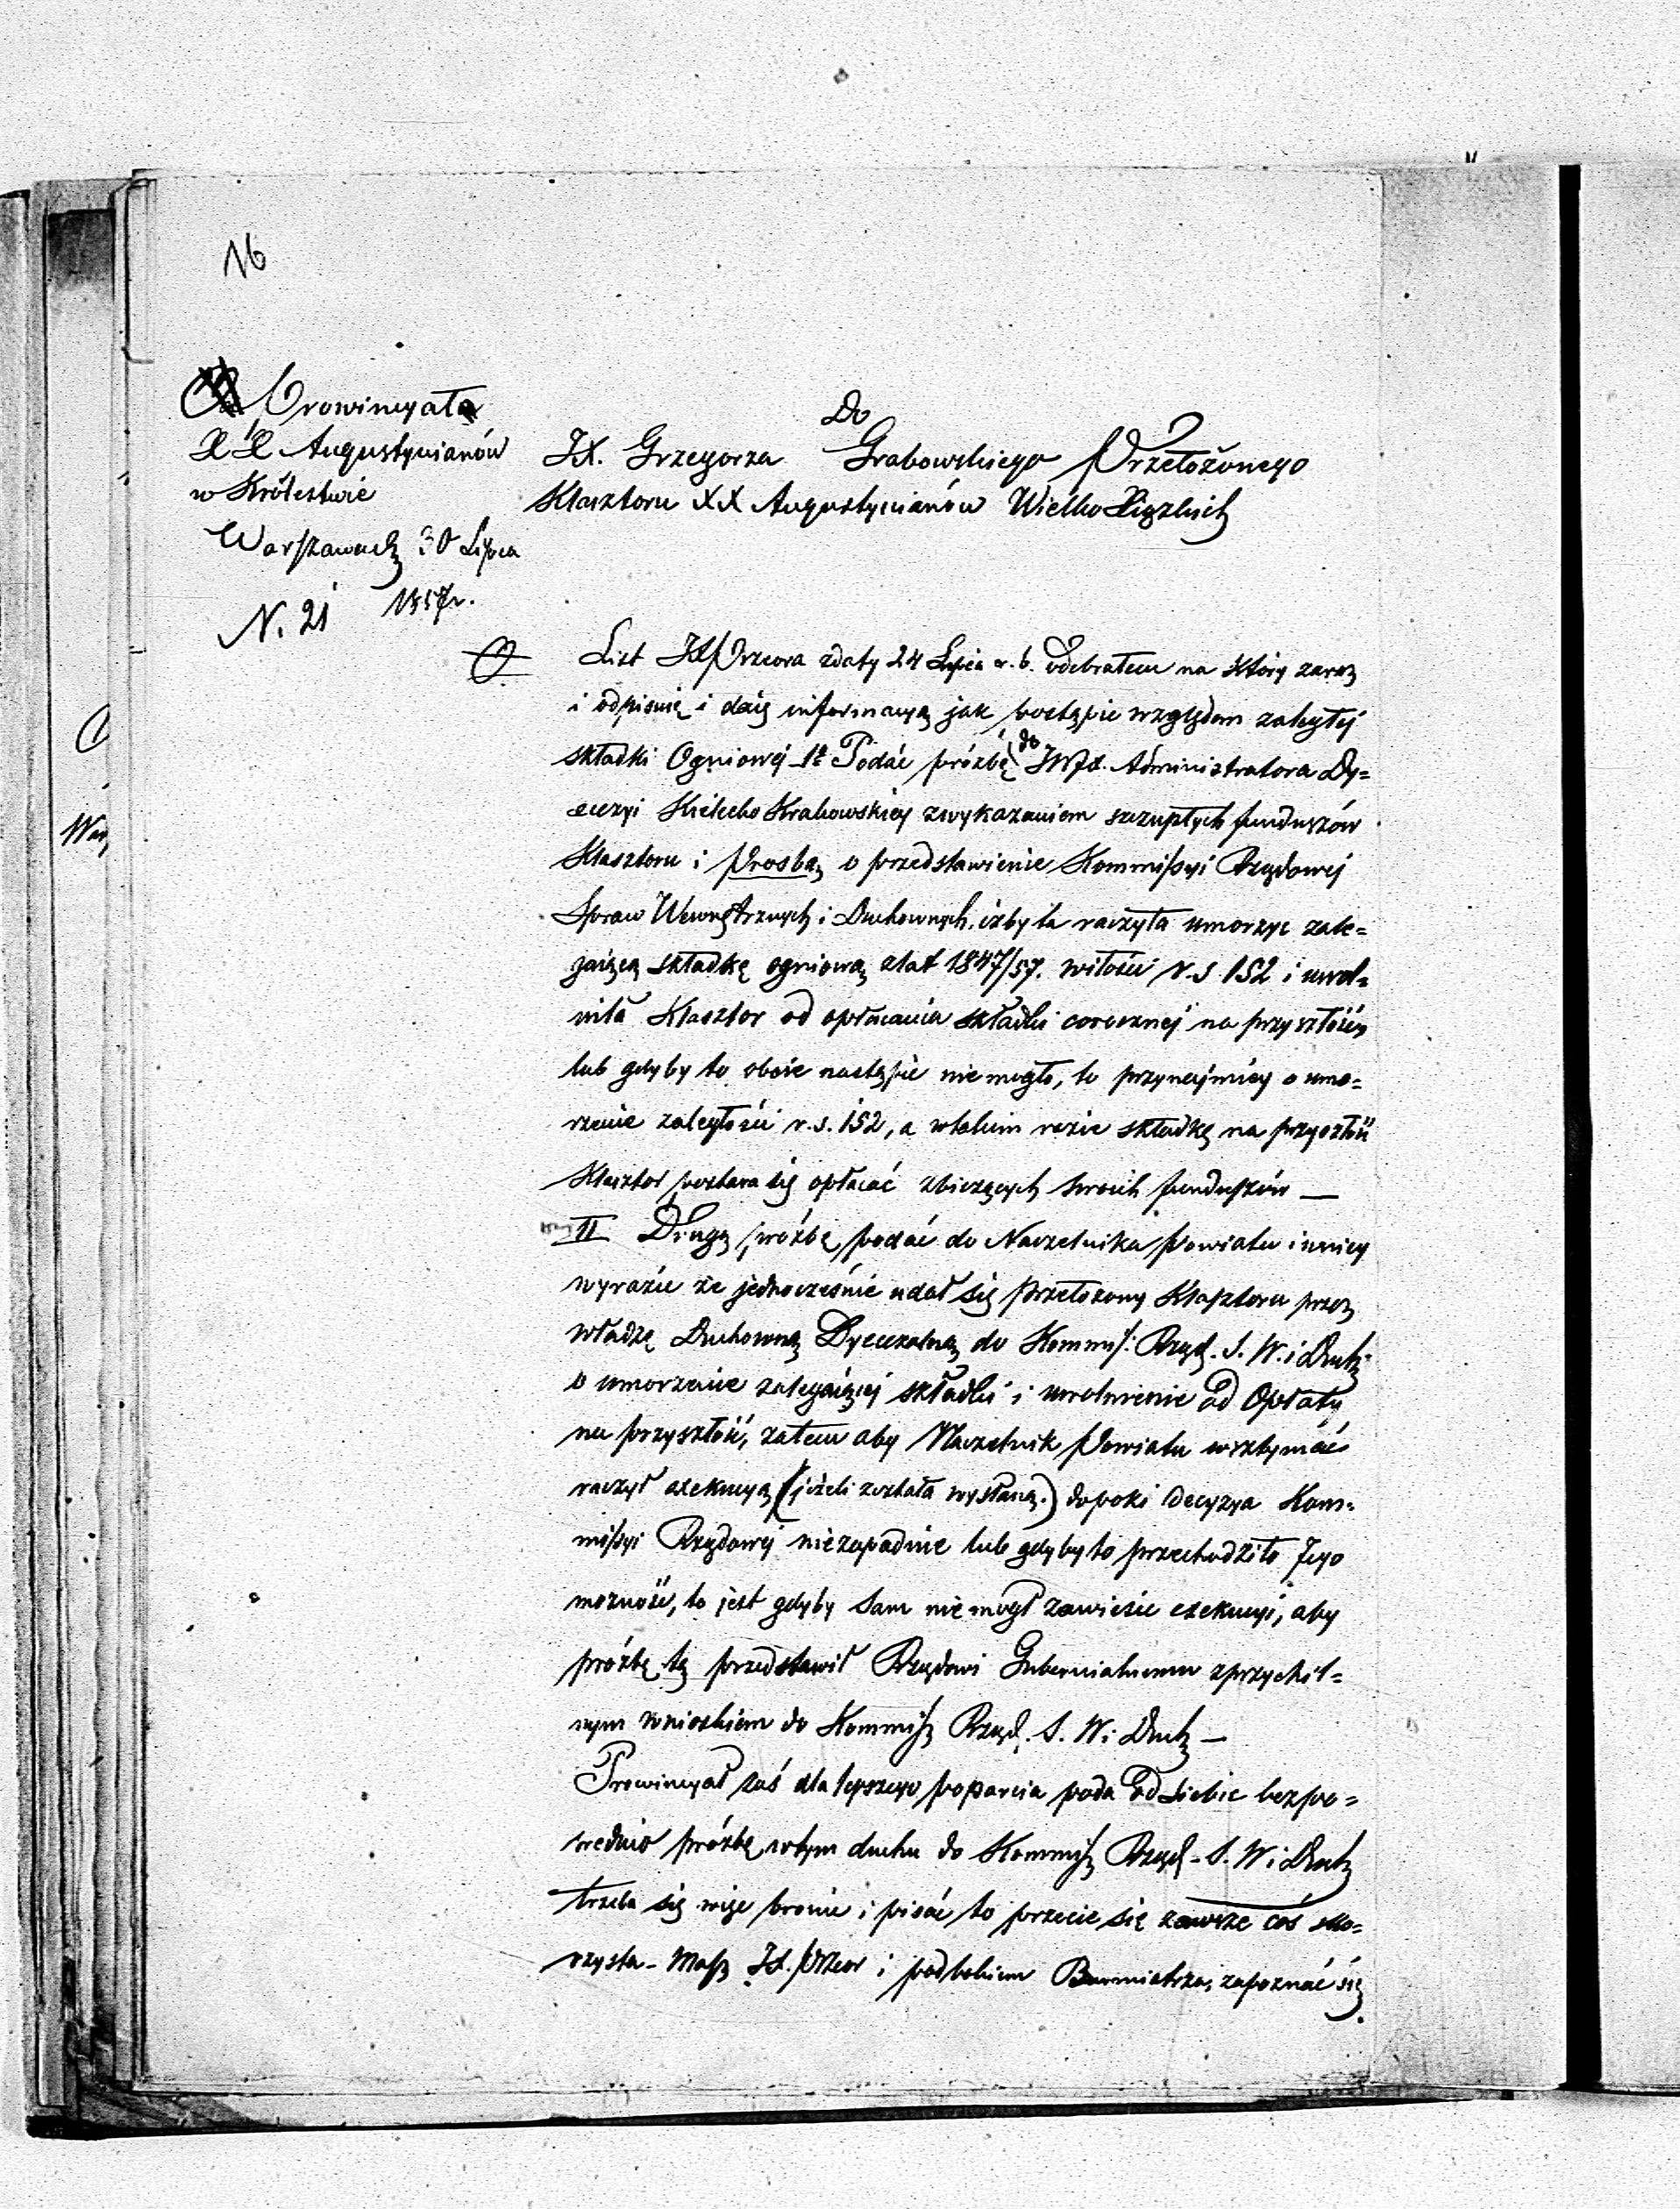 16
Prowincyał
XX Augustynianów
w Królestwie
Warszawa d. 30 Lipca
1857 r.
N. 21
Do
JX. Grzegorza Grabowskiego Przełożonego
Klasztoru XX Augustynianów Wielko Xiązkich
List JX Przeora z daty 24 Lipca r. b. odebrałem na który zaraz
i odpisuię i daię informacyą jak postąpic względem zaległej
składki Ogniowéj 1º Podać próżbę do JWJX. Administratora Dy=
ecezyi Kielecko Krakowskiey z wykazaniem szczupłych funduszów
Klasztoru i Prosbą o przedstawienie Kommissyi Rządowej
Spraw Wewnętrznych i Duchownych, iżby ta raczyła umorzyc zale=
gaiącą składkę ogniową z lat 1847/57. w ilości r. s. 152 i uwol=
niła Klasztor od opłacania składki corocznej na przyszłość,
lub gdyby to oboie nastąpić nie mogło, to przynajmniey o umo=
rzenie zaległości r. s. 152, a w takim razie składkę na przyszłość
Klasztor postara się opłacać z bieżących swoich funduszów —
II Drugą próżbę podać do Naczelnika Powiatu i w niey
wyrazić że jednocześnie udał się Przełożony Klasztoru przez
władzę Duchowną Dyecezalną do Kommiss. Rząd. S. W. i Duch.
o umorzenie zalegaiącej składki i uwolnienie od Opłaty
na przyszłość, zatem aby Naczelnik Powiatu wstrzymać
raczył exekucyą (jeżeli została wysłaną.) dopoki decyzya Kom=
missyi Rządowej niezapadnie lub gdyby to przechodziło Jego
możność, to jest gdyby Sam nie mogł zawiesic exekucyi, aby
próżbę tę przedstawił Rządowi Gubernialnemu z przychil=
nym wnioskiem do Kommiss. Rząd. S. W. i Duch —
Prowincyał zaś dla lepszego poparcia poda od siebie bezpo=
srednio próżbę w tym duchu do Kommiss. Rząd. S. W. i Duch.
trzeba się więc bronic i pisać to przecie się zawsze coś sko=
rzysta - Masz JX. Przeor i pod bokiem Burmistrza, zapoznać się